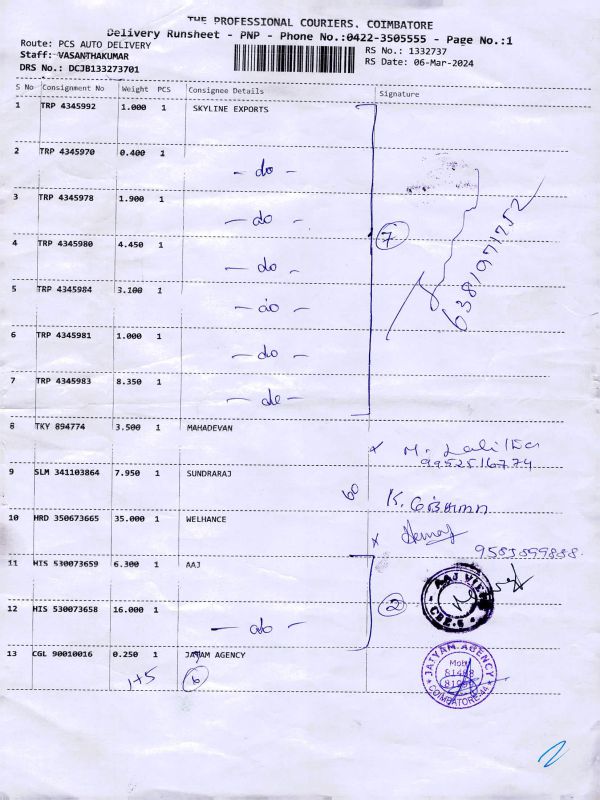 THE PROFESSIONAL COURIERS, COIMBATORE
Delivery Runsheet - PNP - Phone No.:0422-3505555 - Page No.:1
Route: PCS AUTO DELIVERY
RS No.: 1332737
Staff: VASANTHAKUMAR
RS Date: 06-Mar-2024
DRS No.: DCJB133273701
S No Consignment No Weight PCS Consignee Details Signature
1 TRP 4345992 1.000 1 SKYLINE EXPORTS
2 TRP 4345970 0.400 1
- do -
3 TRP 4345978 1.900 1
- do -
7
4 TRP 4345980 4.450 1
- do -
6381971752
5 TRP 4345984 3.100 1
- do -
6 TRP 4345981 1.000 1
- do -
7 TRP 4345983 8.350 1
- do -
8 TKY 894774 3.500 1 MAHADEVAN
x M.
9952516774
9 SLM 341103864 7.950 1 SUNDRARAJ
K.
10 HRD 350673665 35.000 1 WELHANCE
x
11 HIS 530073659 6.300 1 AAJ
AAJ VIEW
CBE-6
12 HIS 530073658 16.000 1
2
- do -
13 CGL 90010016 0.250 1 JAYAM AGENCY
1+5 6
JAIYAM AGENCY
Mob:
COIMBATORE-44
2